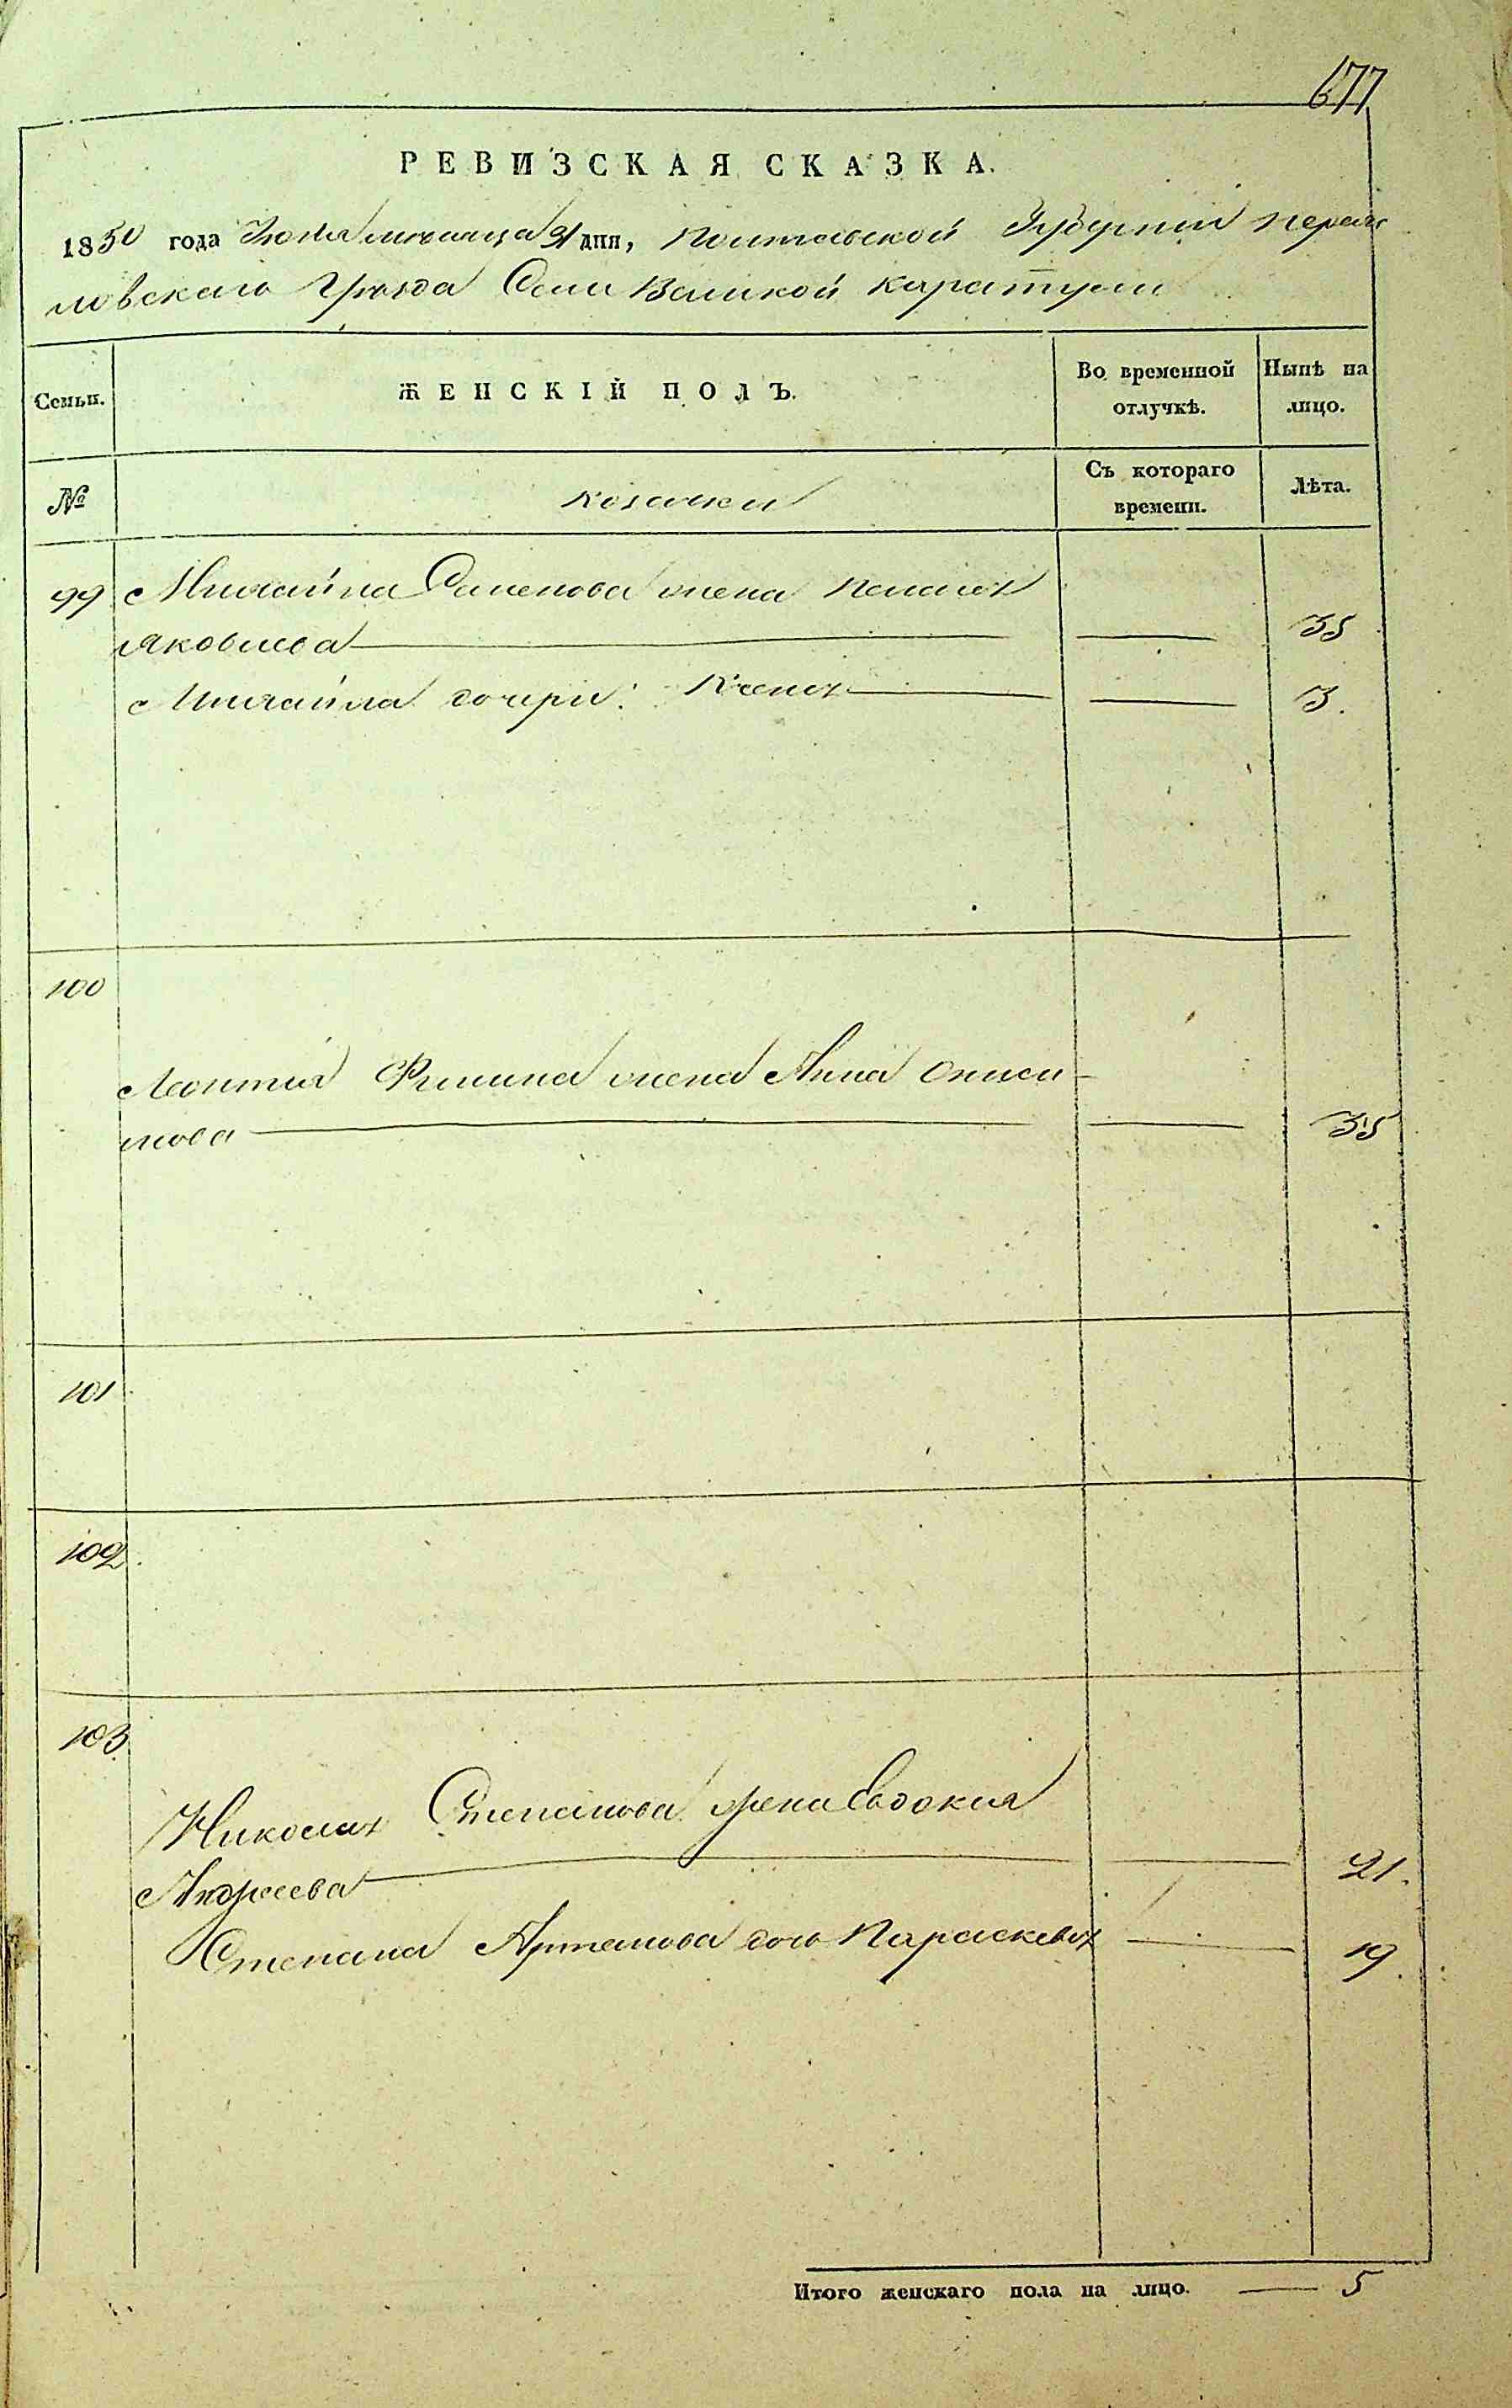 677
РЕВИЗСКАЯ СКАЗКА.
1850 года Июля месяца 31 дня, Полтавской Губернии Переяс
ловскаго Уезда Села Великой Каратули
Семьи.
ЖЕНСКІЙ ПОЛЪ.
Во временной отлучкѣ.
Нынѣ на лицо.
№
Козачки
Съ котораго времени.
Лѣта.
99 Михайла Семенова жена Пелагея
Яковлева 35
Михайла дочери: Ксения 3.
100
Леонтия Филипа жена Анна Ониси-
мова 35
101
102.
103.
Николая Степанова жена Евдокия
Андреева 21.
Степана Артемова дочь Параскевия 19.
Итого женскаго пола на лицо. 5